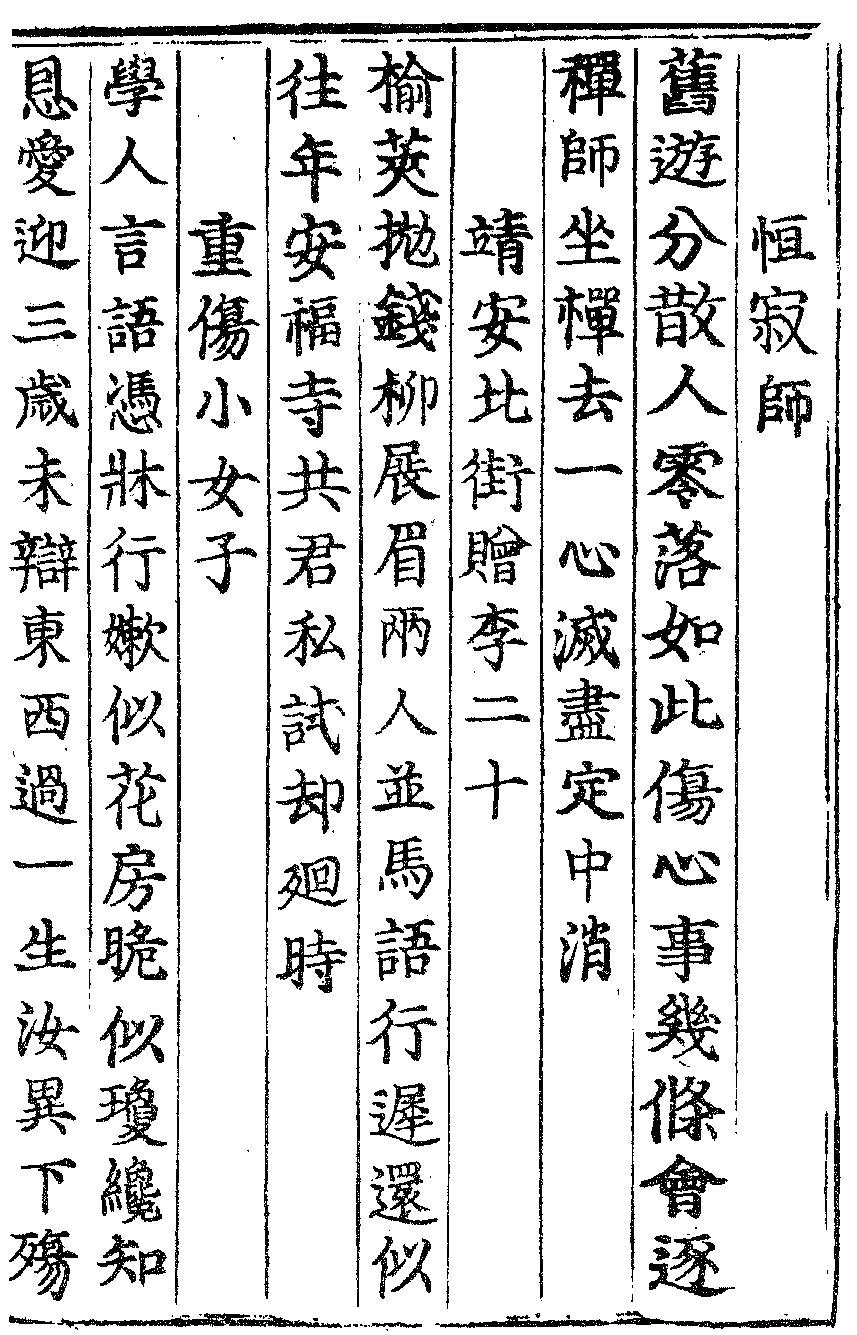 恒寂師
舊遊分散人零落如此傷心事幾條會逐
禪師坐禪去一心滅盡定中消
靖安北街贈李二十
榆莢拋錢柳展眉兩人並馬語行遲還似
往年安福寺共君私試却廻時
重傷小女子
學人言語憑牀行嫩似花房脆似瓊纔知
恩愛迎三歲未辯東西過一生汝異下殤